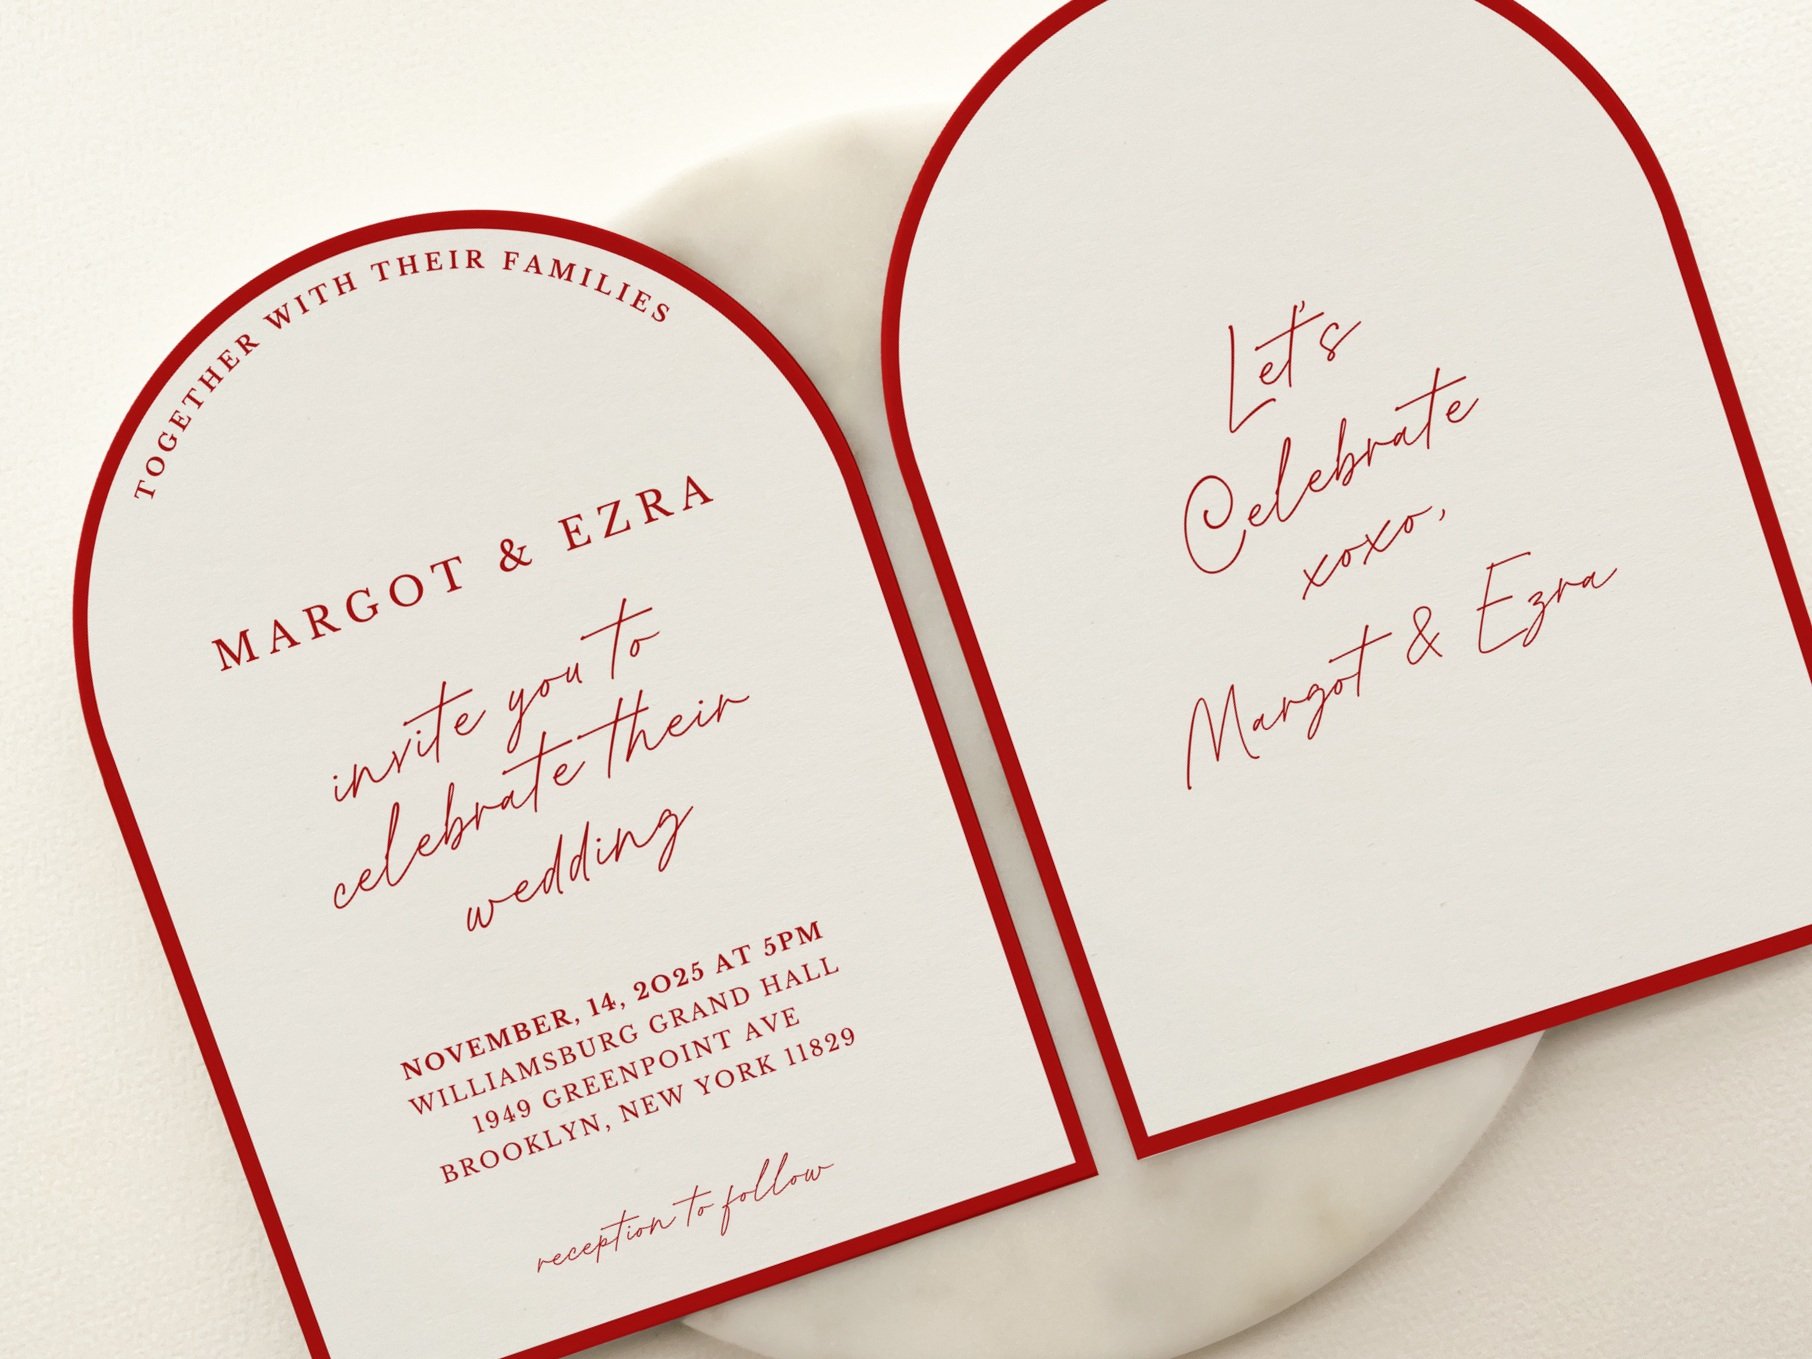 TOGETHER WITH THEIR FAMILIES
MARGOT & EZRA
invite you to
celebrate their
wedding
NOVEMBER, 14, 2025 AT 5PM
WILLIAMSBURG GRAND HALL
1949 GREENPOINT AVE
BROOKLYN, NEW YORK 11829
reception to follow
Let's
Celebrate
xoxo,
Margot & Ezra